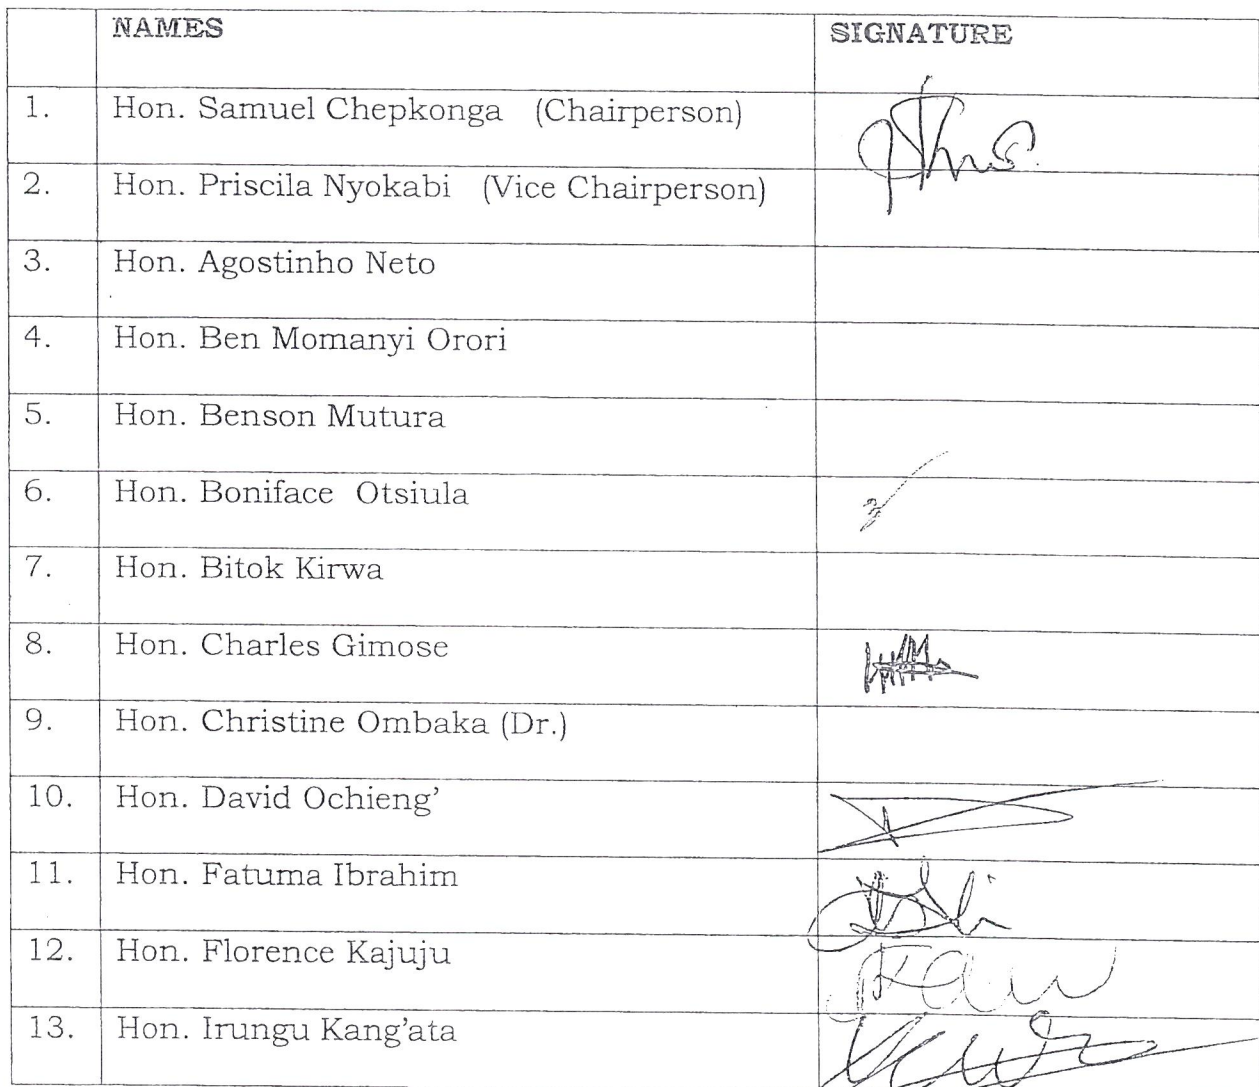 NAMES SIGNATURE
1. Hon. Samuel Chepkonga (Chairperson)
2. Hon. Priscila Nyokabi (Vice Chairperson)
3. Hon. Agostinho Neto
4. Hon. Ben Momanyi Orori
5. Hon. Benson Mutura
6. Hon. Boniface Otsiula
7. Hon. Bitok Kirwa
8. Hon. Charles Gimose
9. Hon. Christine Ombaka (Dr.)
10. Hon. David Ochieng’
11. Hon. Fatuma Ibrahim
12. Hon. Florence Kajuju
13. Hon. Irungu Kang’ata